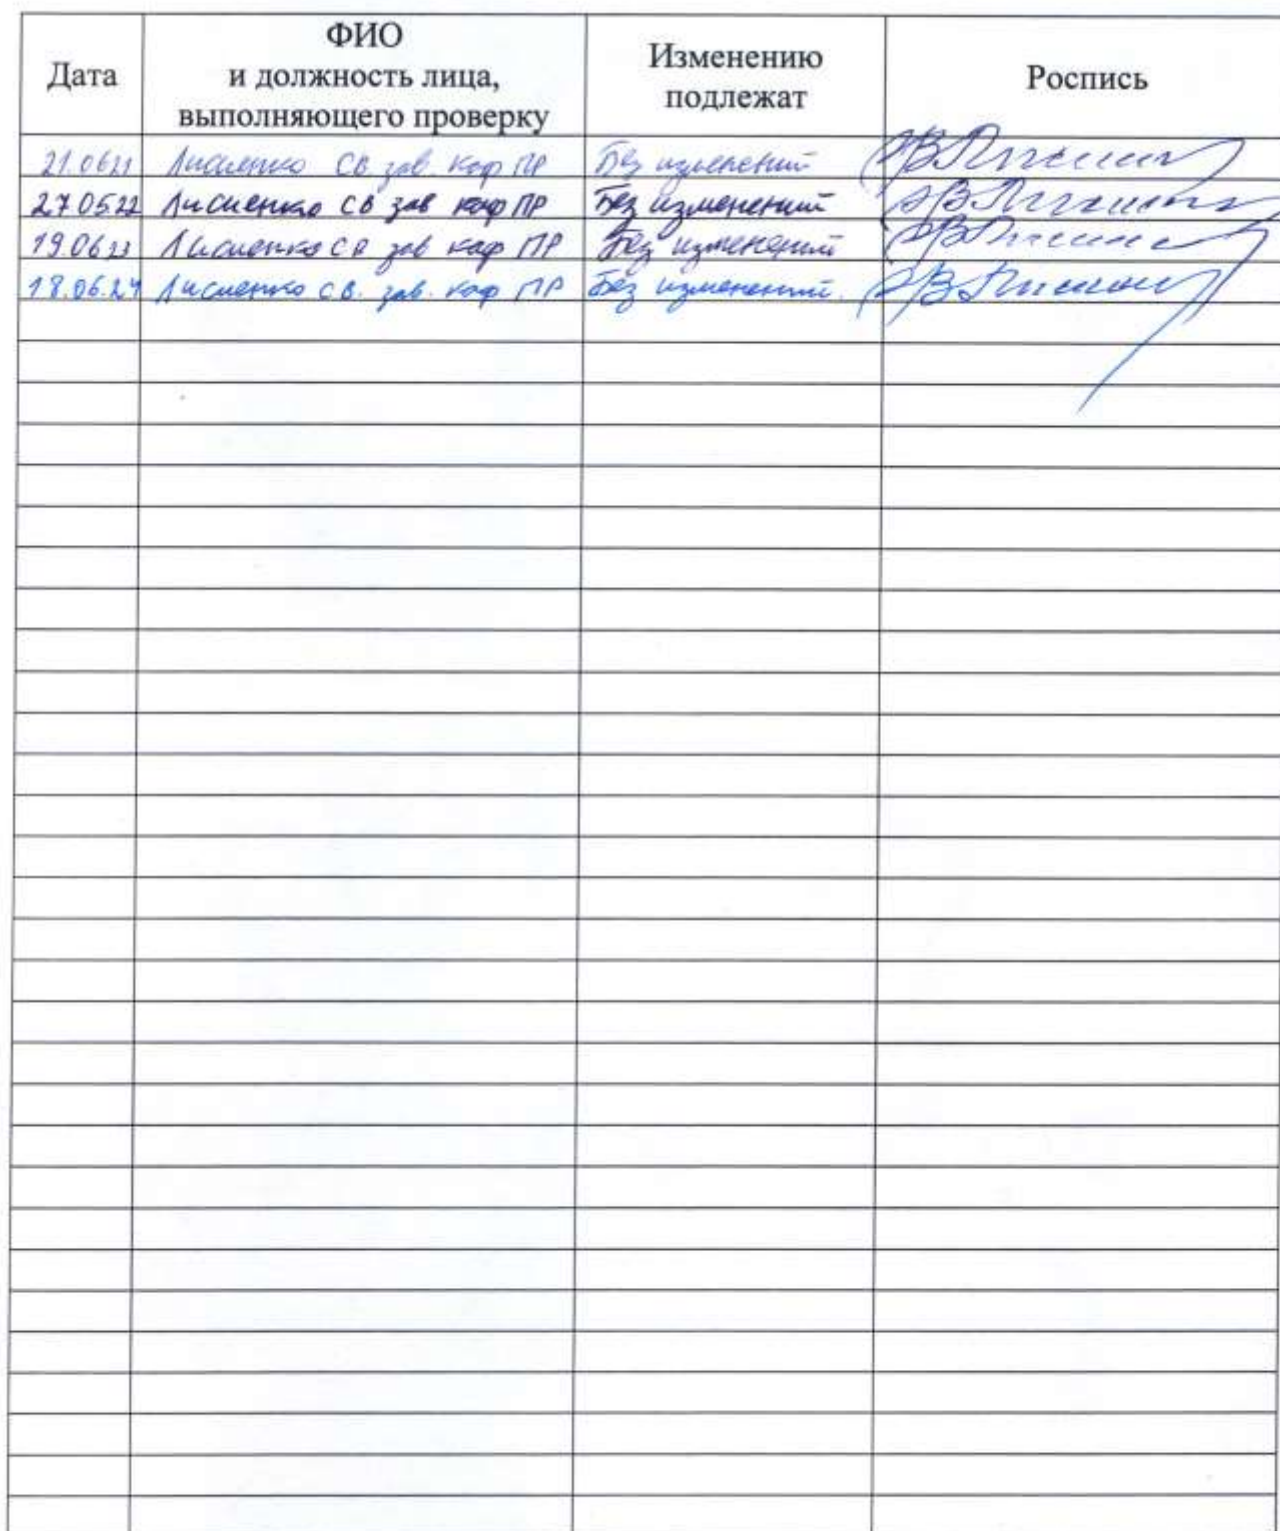 Дата
ФИО
и должность лица,
выполняющего проверку
Изменению
подлежат
Роспись
21.06.21 Лисиенко СВ. зав. каф ПР Без изменений
27.05.22 Лисиенко СВ зав каф ПР Без изменений
19.06.23 Лисиенко СВ зав каф ПР Без изменений
18.06.24 Лисиенко С.В. зав. каф ПР Без изменений.